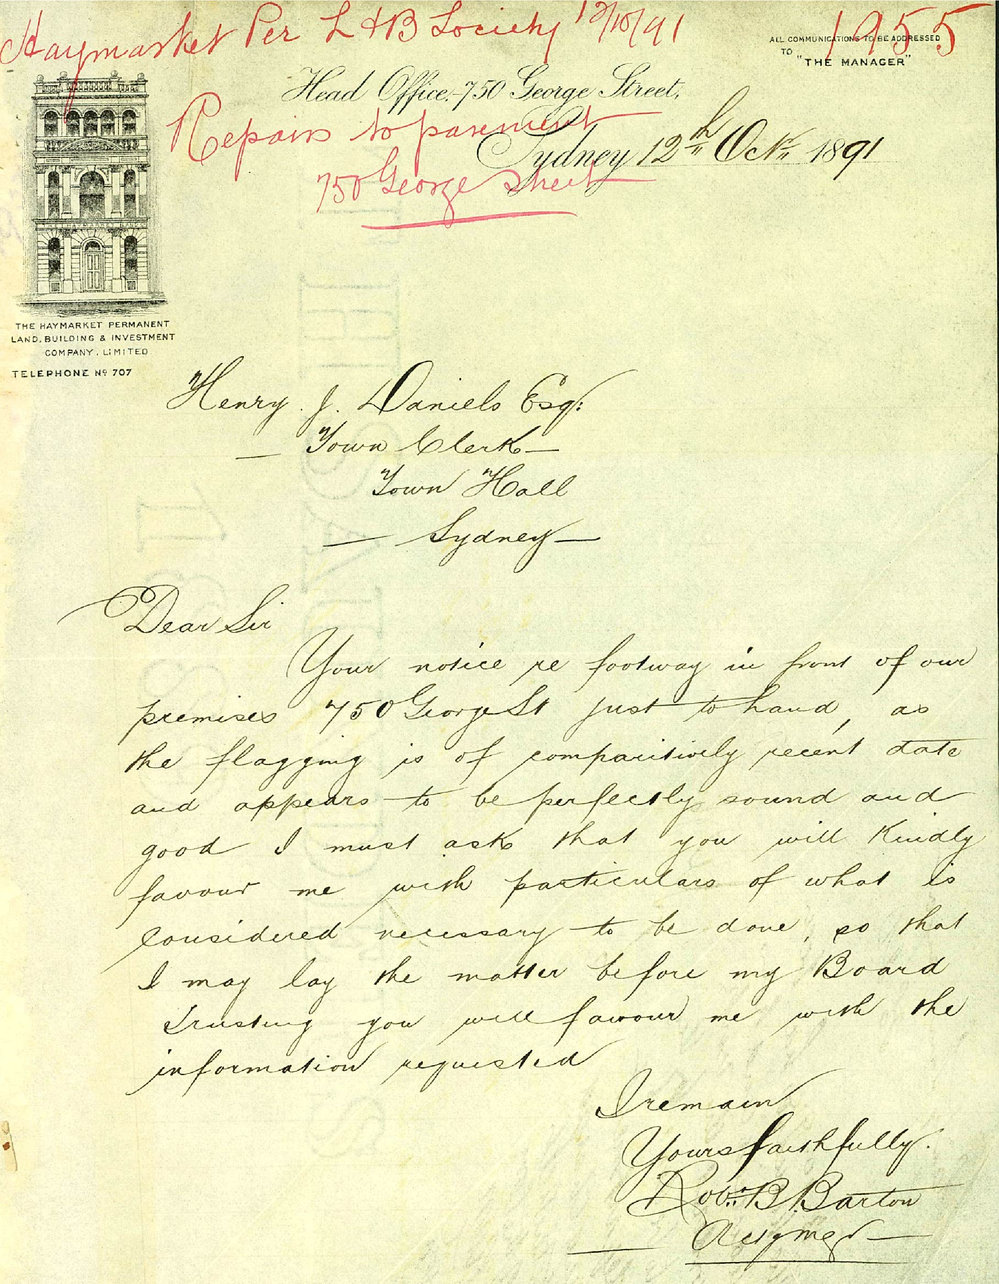 Haymarket Per L & B Society 12/10/91
1955
ALL COMMUNICATIONS TO BE ADDRESSED
TO "THE MANAGER"
Head Office, 750 George Street,
Repairs to pavement
Sydney 12th Oct. 1891
750 George Street
THE HAYMARKET PERMANENT
LAND, BUILDING & INVESTMENT
COMPANY, LIMITED
TELEPHONE No 707
Henry. J. Daniels Esq:
Town Clerk
Town Hall
Sydney
Dear Sir
Your notice re footway in front of our
premises 750 George St just to hand, as
the flagging is of comparitively recent date
and appears to be perfectly sound and
good I must ask that you will kindly
favour me with particulars of what is
considered necessary to be done, so that
I may lay the matter before my Board
Trusting you will favour me with the
information requested
I remain
Yours faithfully.
Robt B. Barton
Actg mgr